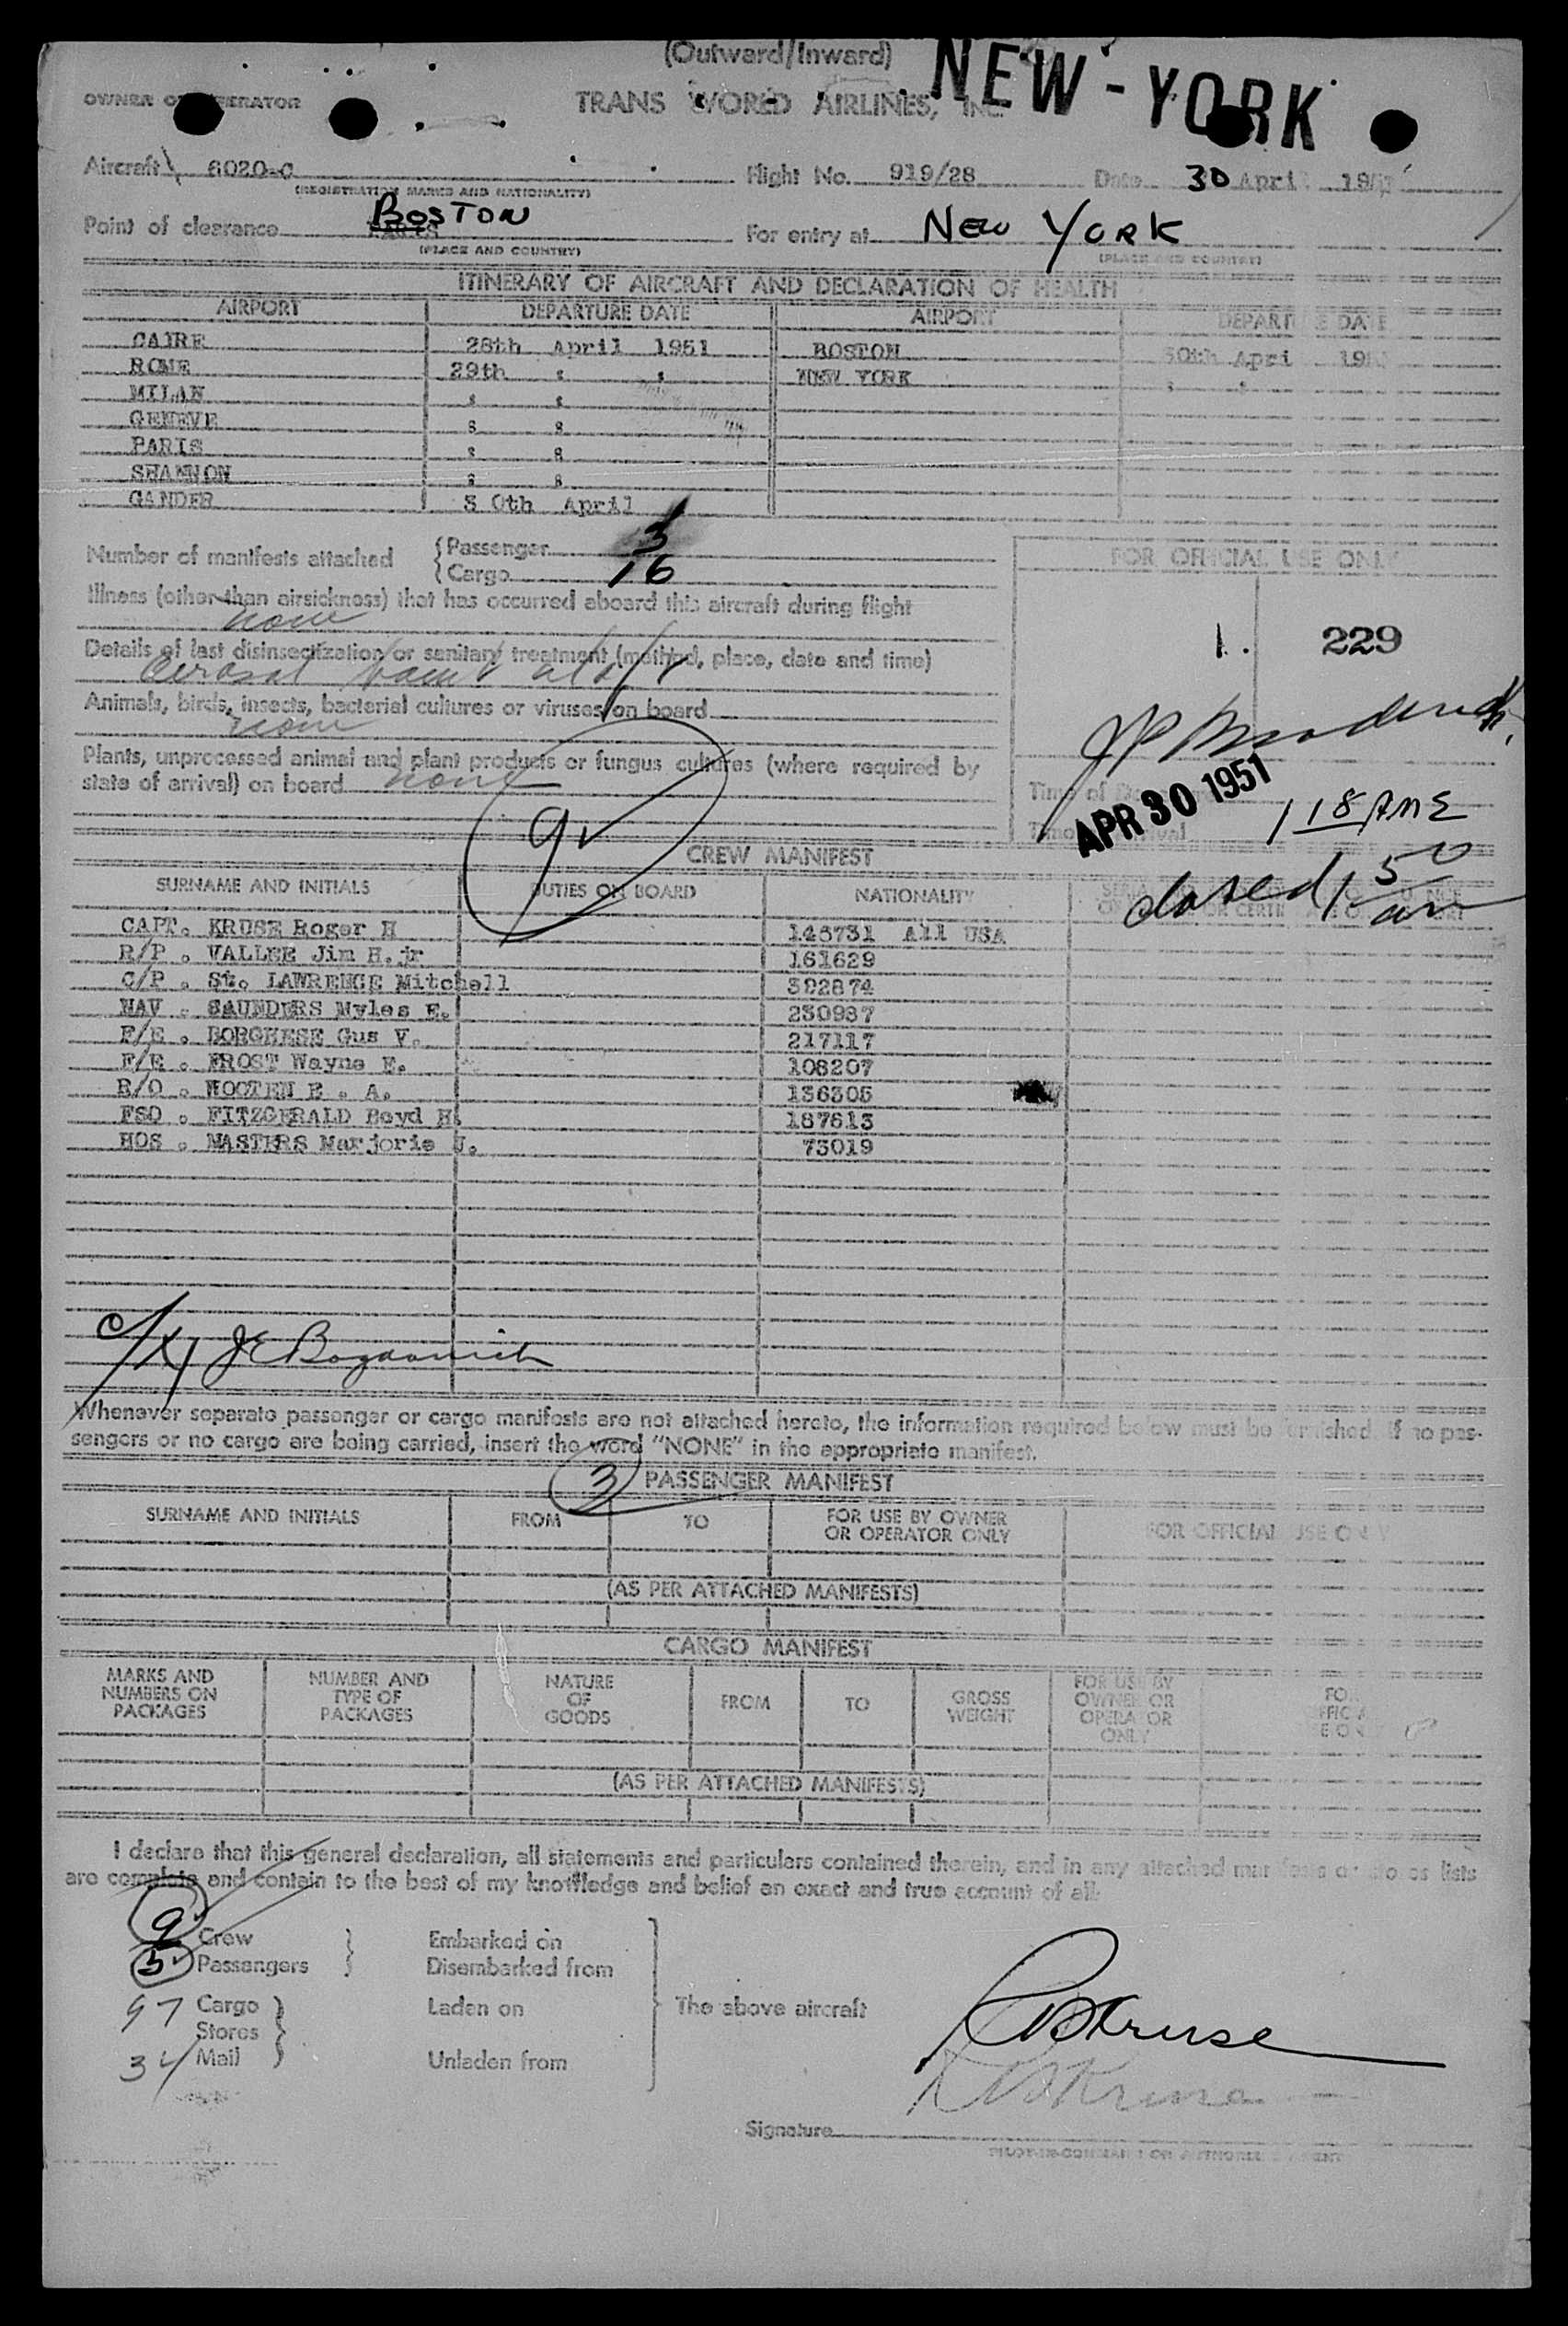 (Outward/Inward)
NEW-YORK
OWNER OR OPERATOR TRANS WORLD AIRLINES, INC.
Aircraft 6020-C Flight No. 919/28 Date 30 April 1951
(REGISTRATION MARKS AND NATIONALITY)
Point of clearance BOSTON PARIS For entry at NEW YORK
(PLACE AND COUNTRY) (PLACE AND COUNTRY)
ITINERARY OF AIRCRAFT AND DECLARATION OF HEALTH
AIRPORT DEPARTURE DATE AIRPORT DEPARTURE DATE
CAIRE 28th April 1951 BOSTON 30th April 195
ROME 29th : : NEW YORK : :
MILAN : :
GENEVE : :
PARIS : :
SHANNON : :
GANDER 3 0th April
Number of manifests attached {Passenger 3
{Cargo 16
FOR OFFICIAL USE ONLY
Illness (other than airsickness) that has occurred aboard this aircraft during flight
none
1. 229
Details of last disinsectization or sanitary treatment (method, place, date and time)
Aerosol bomb aloft
Animals, birds, insects, bacterial cultures or viruses on board
none
Plants, unprocessed animal and plant products or fungus cultures (where required by
state of arrival) on board none
Time of
APR 30 1951
Time of Arrival 1 18 AM E
9
closed 1 50 am
CREW MANIFEST
SURNAME AND INITIALS DUTIES ON BOARD NATIONALITY
CAPT. KRUSE Roger H 145731 All USA
R/P . VALLEE Jim H. jr 161629
C/P . St. LAWRENCE Mitchell 392874
NAV . SAUNDERS Myles E. 230987
F/E . BORGHESE Gus V. 217117
F/E . FROST Wayne E. 108207
R/O . WOOTEN E . A. 136305
FSO . FITZGERALD Boyd H. 187613
HOS . MASTERS Marjorie J. 73019
J E Bogdanovich
Whenever separate passenger or cargo manifests are not attached hereto, the information required below must be furnished. If no pas-
sengers or no cargo are being carried, insert the word "NONE" in the appropriate manifest.
3 PASSENGER MANIFEST
SURNAME AND INITIALS FROM TO FOR USE BY OWNER OR OPERATOR ONLY FOR OFFICIAL USE ONLY
(AS PER ATTACHED MANIFESTS)
CARGO MANIFEST
MARKS AND NUMBERS ON PACKAGES NUMBER AND TYPE OF PACKAGES NATURE OF GOODS FROM TO GROSS WEIGHT FOR USE BY OWNER OR OPERATOR ONLY FOR OFFICIAL USE ONLY
(AS PER ATTACHED MANIFESTS)
I declare that this general declaration, all statements and particulars contained therein, and in any attached manifests or stores lists
are complete and contain to the best of my knowledge and belief an exact and true account of all:
9 Crew } Embarked on
3 Passengers } Disembarked from
97 Cargo } Laden on The above aircraft
Stores
34 Mail } Unladen from
RH Kruse
RH Kruse
Signature
PILOT-IN-COMMAND OR AUTHORIZED AGENT